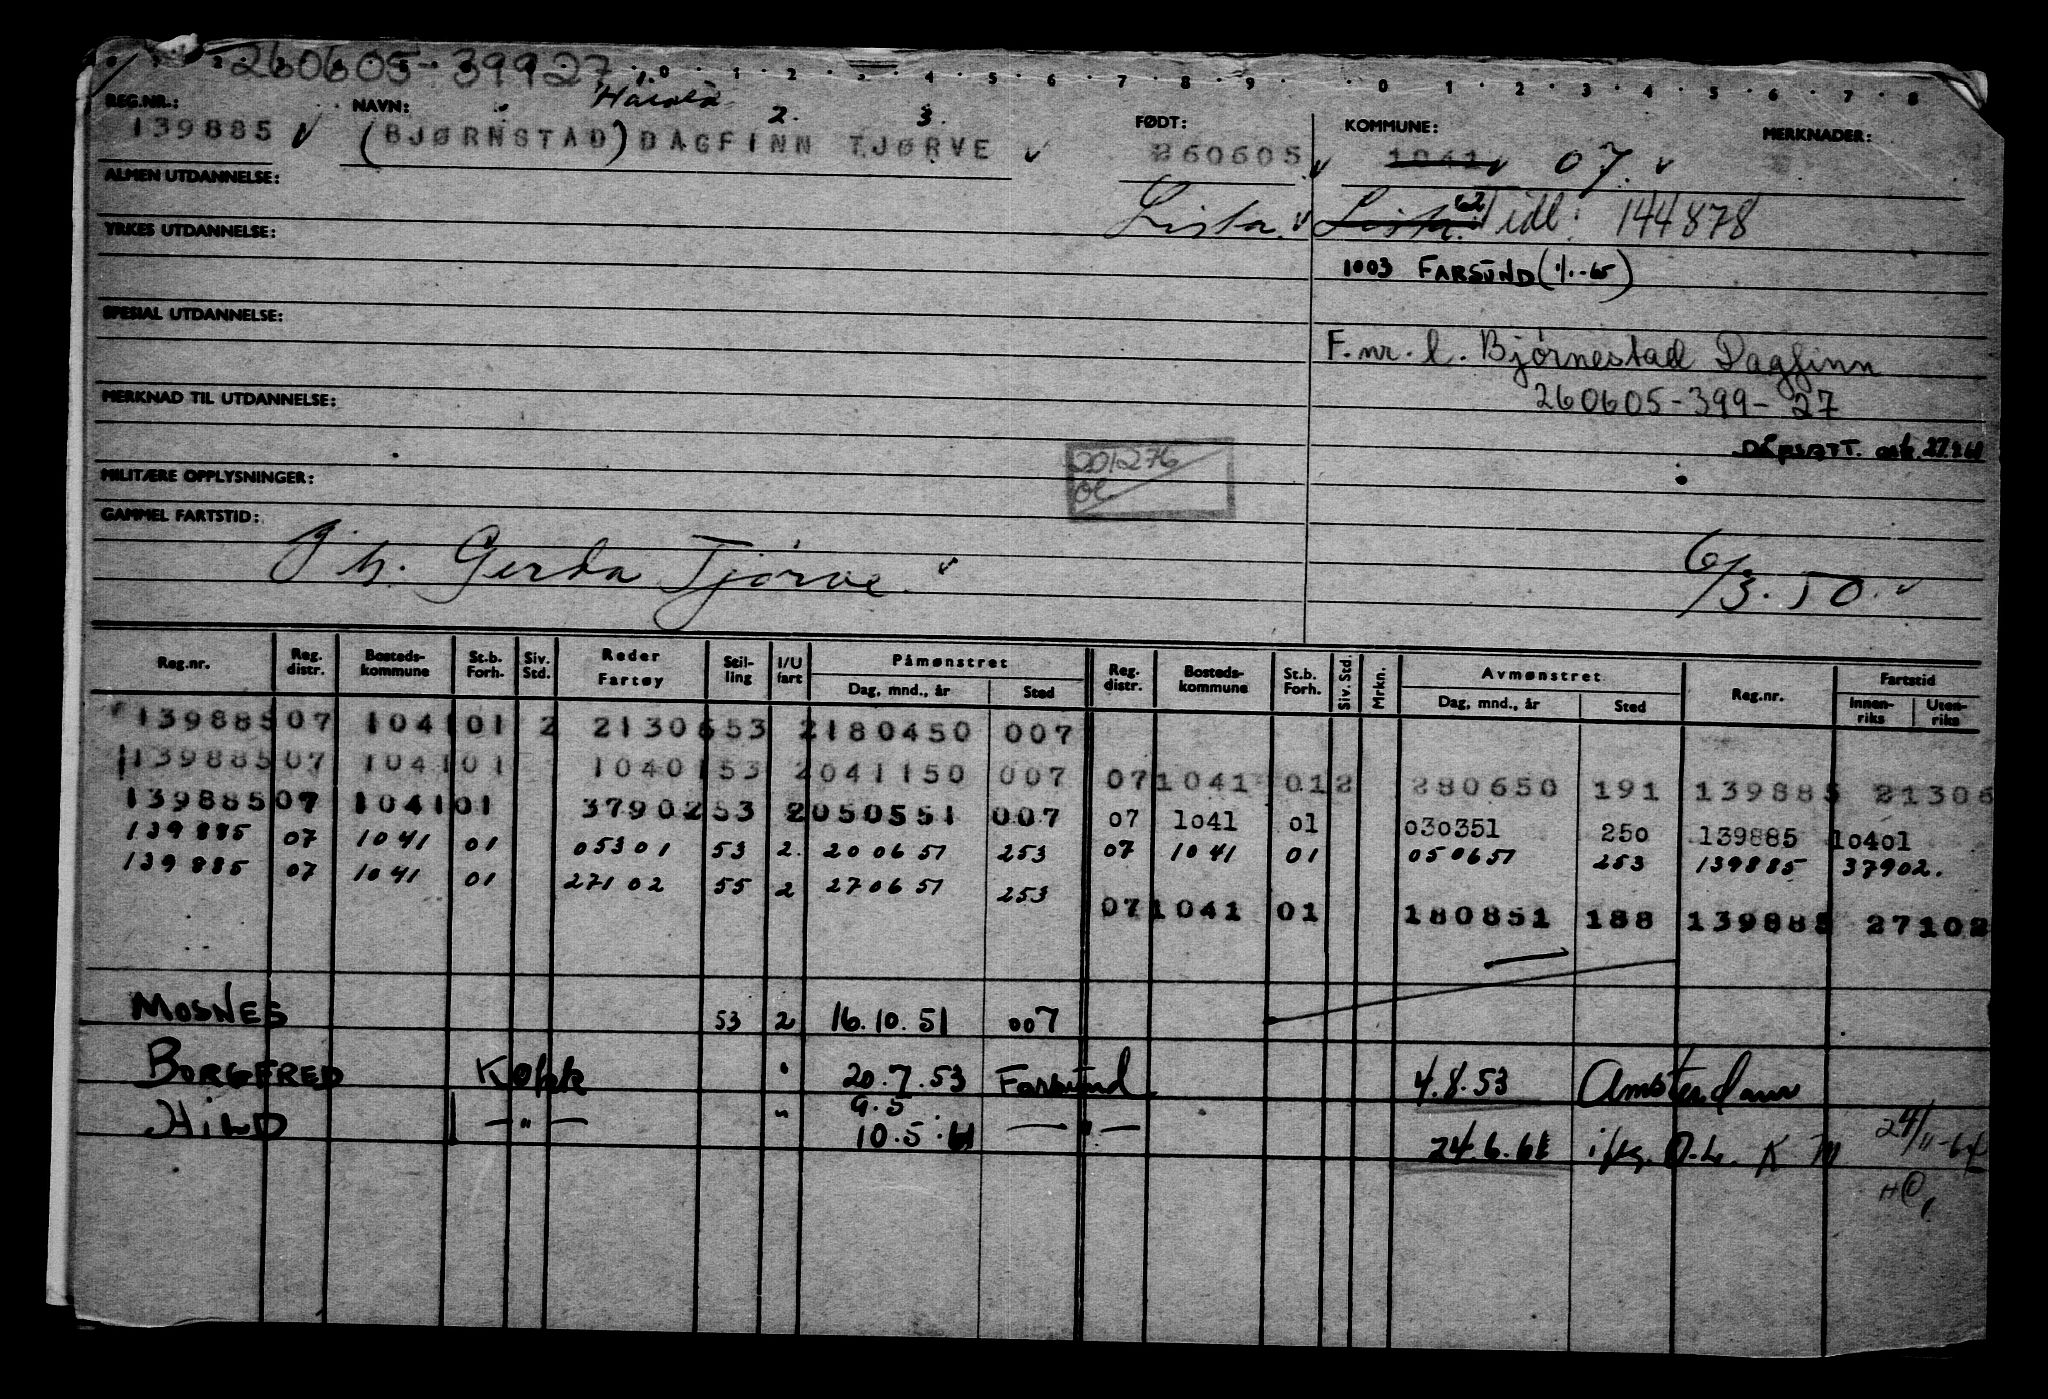 260605-39927
REG.NR.: NAVN: Harald FØDT: KOMMUNE: MERKNADER:
1. 2. 3.
139885 (BJØRNSTAD) DAGFINN TJØRVE 260605 1041 07.
ALMEN UTDANNELSE:
Lista. Lista. Tidl: 144878
YRKES UTDANNELSE:
1003 FARSUND (1/1-65)
SPESIAL UTDANNELSE:
F.nr. l. Bjørnestad Dagfinn
260605-399-27
MERKNAD TIL UTDANNELSE:
DÅPSATT.
201276
MILITÆRE OPPLYSNINGER:
GAMMEL FARTSTID:
Gerda Tjörve 6/3.50.
Reg.nr. Reg. distr. Bosteds-kommune St.b. Forh. Siv. Std. Reder Fartøy Stil-ling I/U fart Påmønstret Dag, mnd., år Sted Reg. distr. Bosteds-kommune St.b. Forh. Siv. Std. Mrkn. Avmønstret Dag, mnd., år Sted Reg.nr. Fartstid Innen-riks Uten-riks
139885 07 1041 01 2 21306 53 2 180450 007
139885 07 1041 01 10401 53 2 041150 007 07 1041 01 2 280650 191 139885 21306
139885 07 1041 01 37902 53 2 050551 007 07 1041 01 030351 250 139885 10401
139885 07 1041 01 05301 53 2. 200651 253 07 1041 01 050651 253 139885 37902.
139885 07 1041 01 27102 55 2 270651 253
07 1041 01 180851 188 139885 27102
MOSNES 53 2 16.10.51 007
BORGFRED Kokk " 20.7.53 Farsund 4.8.53 Amsterdam
9.5
HILD — " — " 10.5.61 — " — 24.6.61